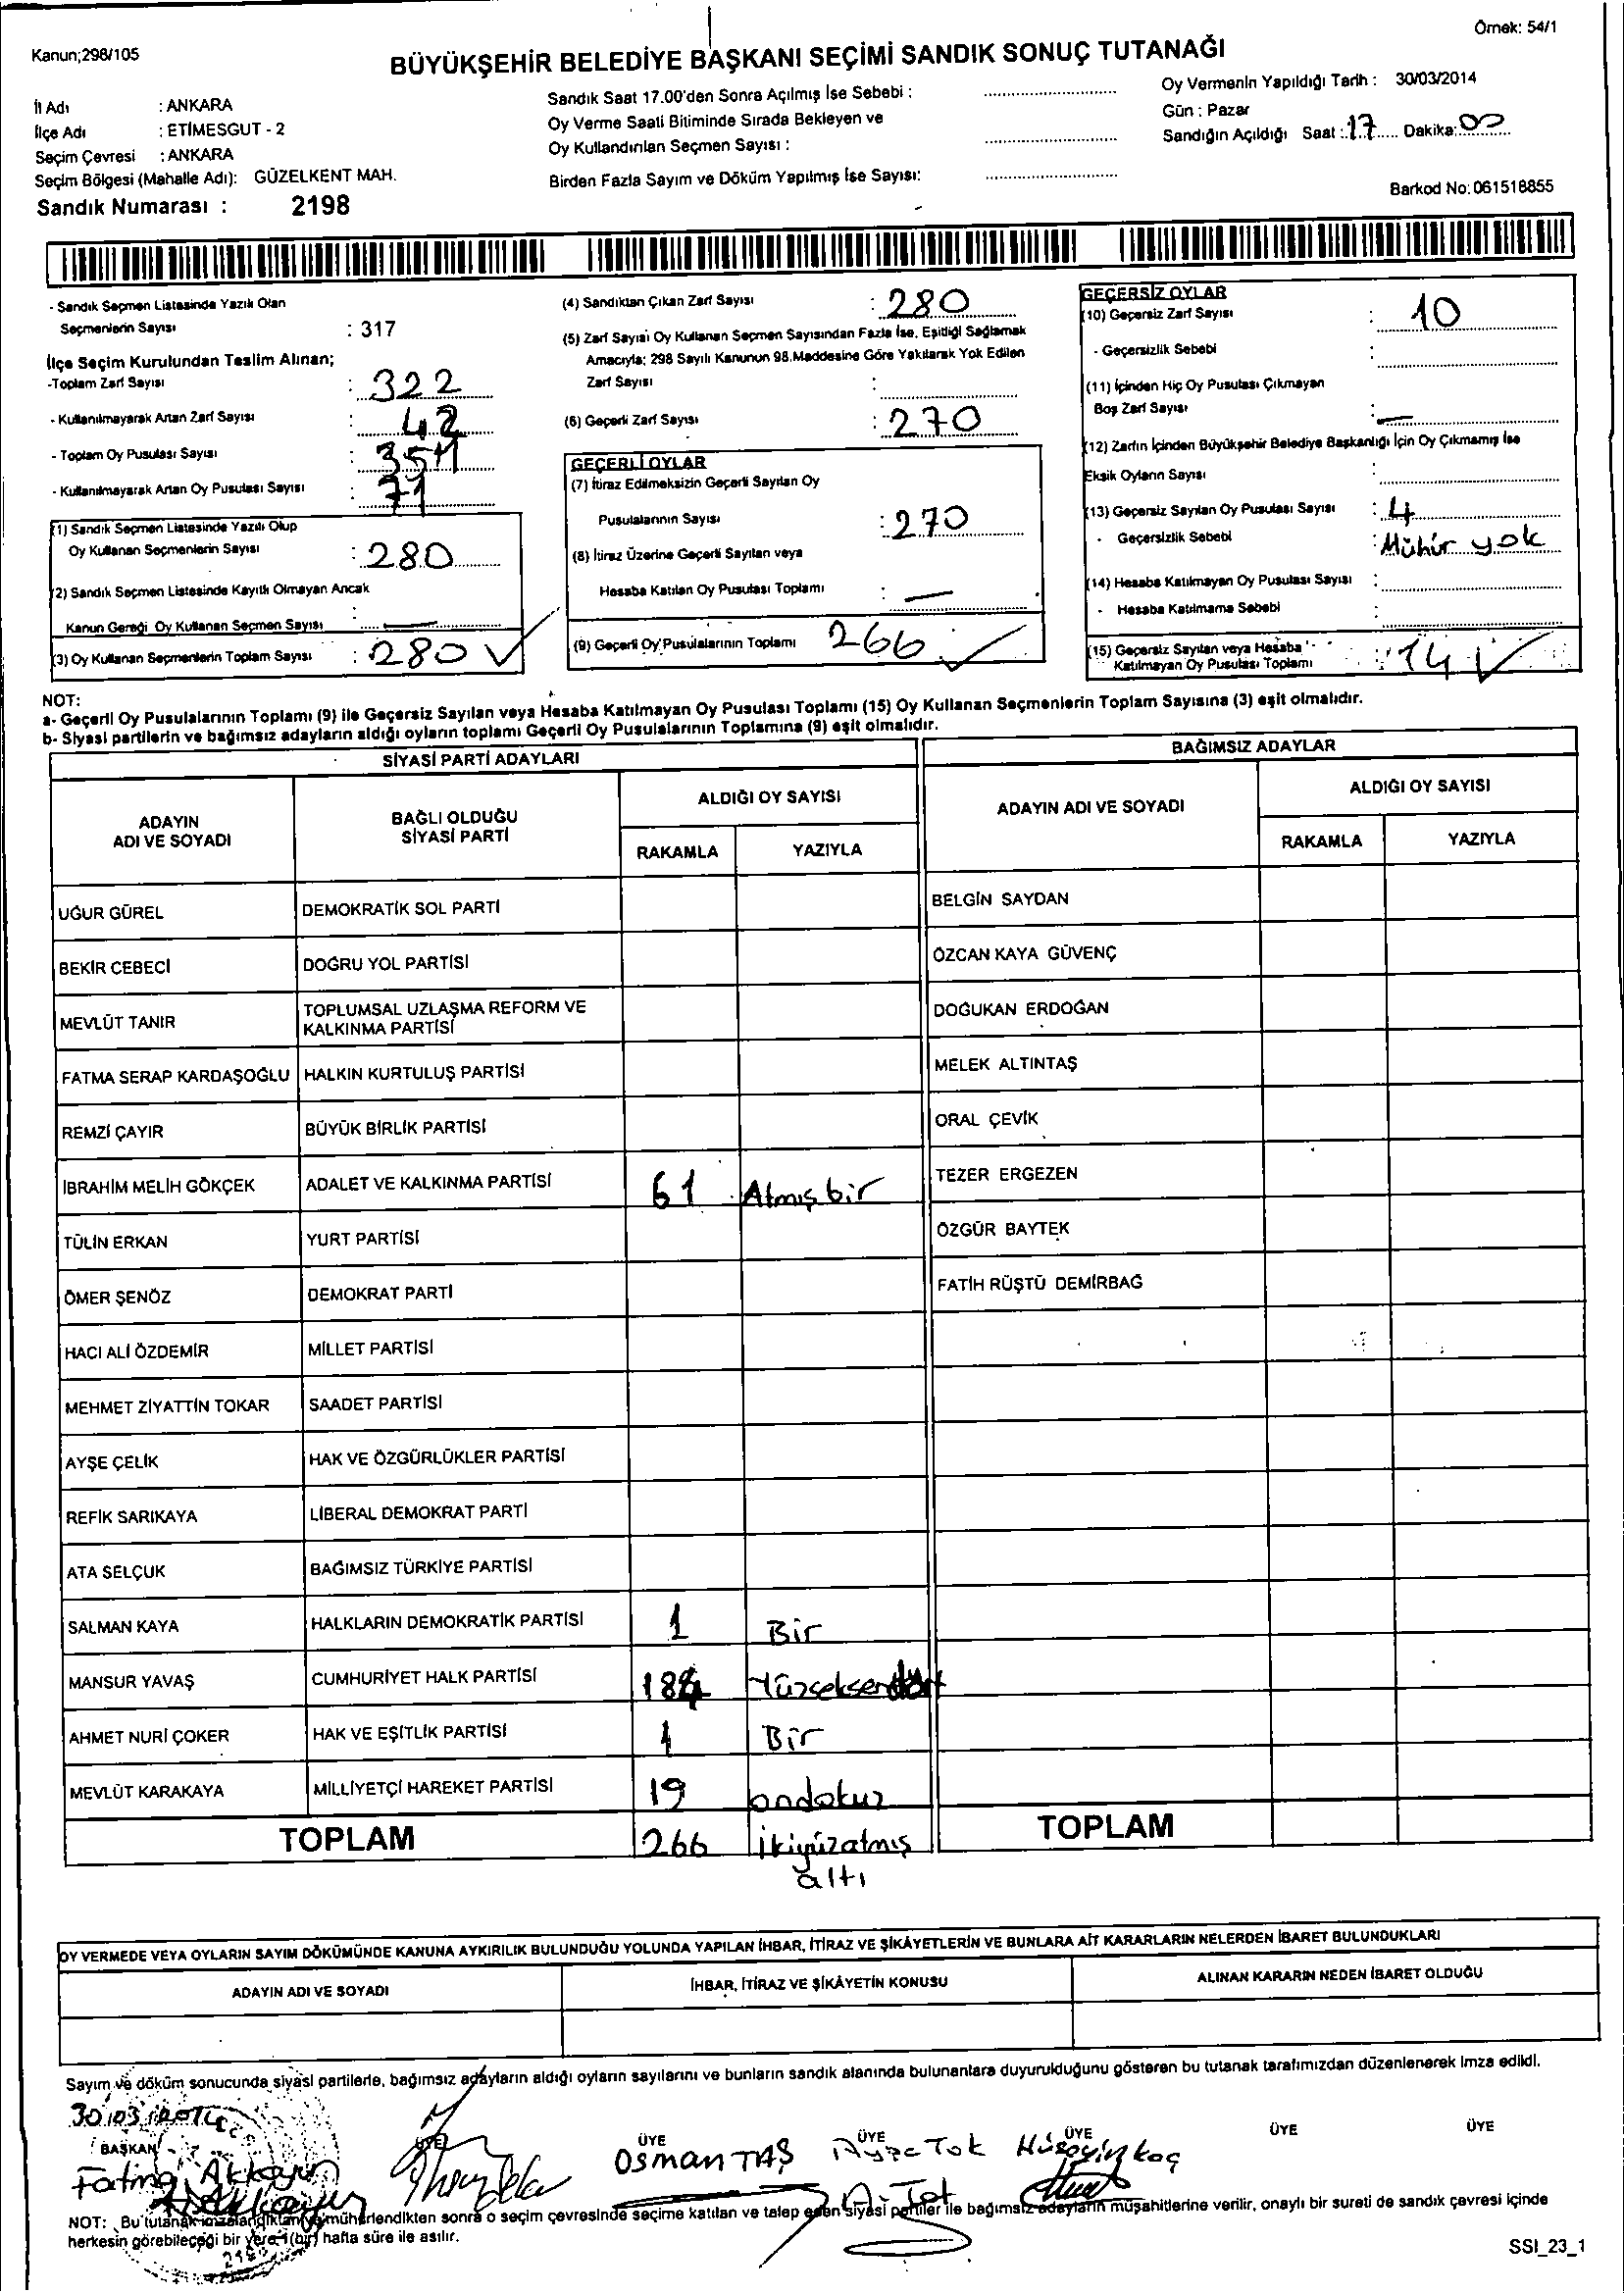 Örnek: 54/1
Kanun;298/105
BÜYÜKŞEHİR BELEDİYE BAŞKANI SEÇİMİ SANDIK SONUÇ TUTANAĞI
İl Adı : ANKARA
İlçe Adı : ETİMESGUT - 2
Seçim Çevresi : ANKARA
Seçim Bölgesi (Mahalle Adı): GÜZELKENT MAH.
Sandık Numarası : 2198
Sandık Saat 17.00'den Sonra Açılmış İse Sebebi :
Oy Verme Saati Bitiminde Sırada Bekleyen ve
Oy Kullandırılan Seçmen Sayısı :
Birden Fazla Sayım ve Döküm Yapılmış İse Sayısı:
Oy Vermenin Yapıldığı Tarih : 30/03/2014
Gün : Pazar
Sandığın Açıldığı Saat : 17 Dakika: 00
Barkod No: 061518855
- Sandık Seçmen Listesinde Yazılı Olan
Seçmenlerin Sayısı : 317
İlçe Seçim Kurulundan Teslim Alınan;
-Toplam Zarf Sayısı : 322
- Kullanılmayarak Artan Zarf Sayısı : 42
- Toplam Oy Pusulası Sayısı : 351
- Kullanılmayarak Artan Oy Pusulası Sayısı : 71
(1) Sandık Seçmen Listesinde Yazılı Olup
Oy Kullanan Seçmenlerin Sayısı : 280
(2) Sandık Seçmen Listesinde Kayıtlı Olmayan Ancak
Kanun Gereği Oy Kullanan Seçmen Sayısı : —
(3) Oy Kullanan Seçmenlerin Toplam Sayısı : 280 ✓
(4) Sandıktan Çıkan Zarf Sayısı : 280
(5) Zarf Sayısı Oy Kullanan Seçmen Sayısından Fazla İse, Eşitliği Sağlamak
Amacıyla; 298 Sayılı Kanunun 98.Maddesine Göre Yakılarak Yok Edilen
Zarf Sayısı :
(6) Geçerli Zarf Sayısı : 270
GEÇERLİ OYLAR
(7) İtiraz Edilmeksizin Geçerli Sayılan Oy
Pusulalarının Sayısı : 270
(8) İtiraz Üzerine Geçerli Sayılan veya
Hesaba Katılan Oy Pusulası Toplamı : —
(9) Geçerli Oy Pusulalarının Toplamı 266 ✓
GEÇERSİZ OYLAR
(10) Geçersiz Zarf Sayısı : 10
- Geçersizlik Sebebi :
(11) İçinden Hiç Oy Pusulası Çıkmayan
Boş Zarf Sayısı : —
(12) Zarfın İçinden Büyükşehir Belediye Başkanlığı İçin Oy Çıkmamış İse
Eksik Oyların Sayısı :
(13) Geçersiz Sayılan Oy Pusulası Sayısı : 4
- Geçersizlik Sebebi : Mühür yok
(14) Hesaba Katılmayan Oy Pusulası Sayısı :
- Hesaba Katılmama Sebebi :
(15) Geçersiz Sayılan veya Hesaba
Katılmayan Oy Pusulası Toplamı : 14 ✓
NOT:
a- Geçerli Oy Pusulalarının Toplamı (9) ile Geçersiz Sayılan veya Hesaba Katılmayan Oy Pusulası Toplamı (15) Oy Kullanan Seçmenlerin Toplam Sayısına (3) eşit olmalıdır.
b- Siyasi partilerin ve bağımsız adayların aldığı oyların toplamı Geçerli Oy Pusulalarının Toplamına (9) eşit olmalıdır.
SİYASİ PARTİ ADAYLARI
ADAYIN
ADI VE SOYADI
BAĞLI OLDUĞU
SİYASİ PARTİ
ALDIĞI OY SAYISI
RAKAMLA YAZIYLA
UĞUR GÜREL DEMOKRATİK SOL PARTİ
BEKİR CEBECİ DOĞRU YOL PARTİSİ
MEVLÜT TANIR TOPLUMSAL UZLAŞMA REFORM VE
KALKINMA PARTİSİ
FATMA SERAP KARDAŞOĞLU HALKIN KURTULUŞ PARTİSİ
REMZİ ÇAYIR BÜYÜK BİRLİK PARTİSİ
İBRAHİM MELİH GÖKÇEK ADALET VE KALKINMA PARTİSİ 61 Atmış bir
TÜLİN ERKAN YURT PARTİSİ
ÖMER ŞENÖZ DEMOKRAT PARTİ
HACI ALİ ÖZDEMİR MİLLET PARTİSİ
MEHMET ZİYATTİN TOKAR SAADET PARTİSİ
AYŞE ÇELİK HAK VE ÖZGÜRLÜKLER PARTİSİ
REFİK SARIKAYA LİBERAL DEMOKRAT PARTİ
ATA SELÇUK BAĞIMSIZ TÜRKİYE PARTİSİ
SALMAN KAYA HALKLARIN DEMOKRATİK PARTİSİ 1 Bir
MANSUR YAVAŞ CUMHURİYET HALK PARTİSİ 184 Yüzseksendört
AHMET NURİ ÇOKER HAK VE EŞİTLİK PARTİSİ 1 Bir
MEVLÜT KARAKAYA MİLLİYETÇİ HAREKET PARTİSİ 19 ondokuz
TOPLAM 266 İkiyüzatmış
altı
BAĞIMSIZ ADAYLAR
ADAYIN ADI VE SOYADI
ALDIĞI OY SAYISI
RAKAMLA YAZIYLA
BELGİN SAYDAN
ÖZCAN KAYA GÜVENÇ
DOĞUKAN ERDOĞAN
MELEK ALTINTAŞ
ORAL ÇEVİK
TEZER ERGEZEN
ÖZGÜR BAYTEK
FATİH RÜŞTÜ DEMİRBAĞ
TOPLAM
OY VERMEDE VEYA OYLARIN SAYIM DÖKÜMÜNDE KANUNA AYKIRILIK BULUNDUĞU YOLUNDA YAPILAN İHBAR, İTİRAZ VE ŞİKÂYETLERİN VE BUNLARA AİT KARARLARIN NELERDEN İBARET BULUNDUKLARI
ADAYIN ADI VE SOYADI İHBAR, İTİRAZ VE ŞİKÂYETİN KONUSU ALINAN KARARIN NEDEN İBARET OLDUĞU
Sayım ve döküm sonucunda siyasi partilerle, bağımsız adayların aldığı oyların sayılarını ve bunların sandık alanında bulunanlara duyurulduğunu gösteren bu tutanak tarafımızdan düzenlenerek imza edildi.
30/03/2014
BAŞKAN ÜYE ÜYE ÜYE ÜYE ÜYE ÜYE
Osman TAŞ Ayşe Tok Hüseyin Koç
A. Tok
NOT: Bu tutanak imzalandıktan ve mühürlendikten sonra o seçim çevresinde seçime katılan ve talep eden siyasi partiler ile bağımsız adayların müşahitlerine verilir, onaylı bir sureti de sandık çevresi içinde
herkesin görebileceği bir yere 1 (bir) hafta süre ile asılır.
SSI_23_1